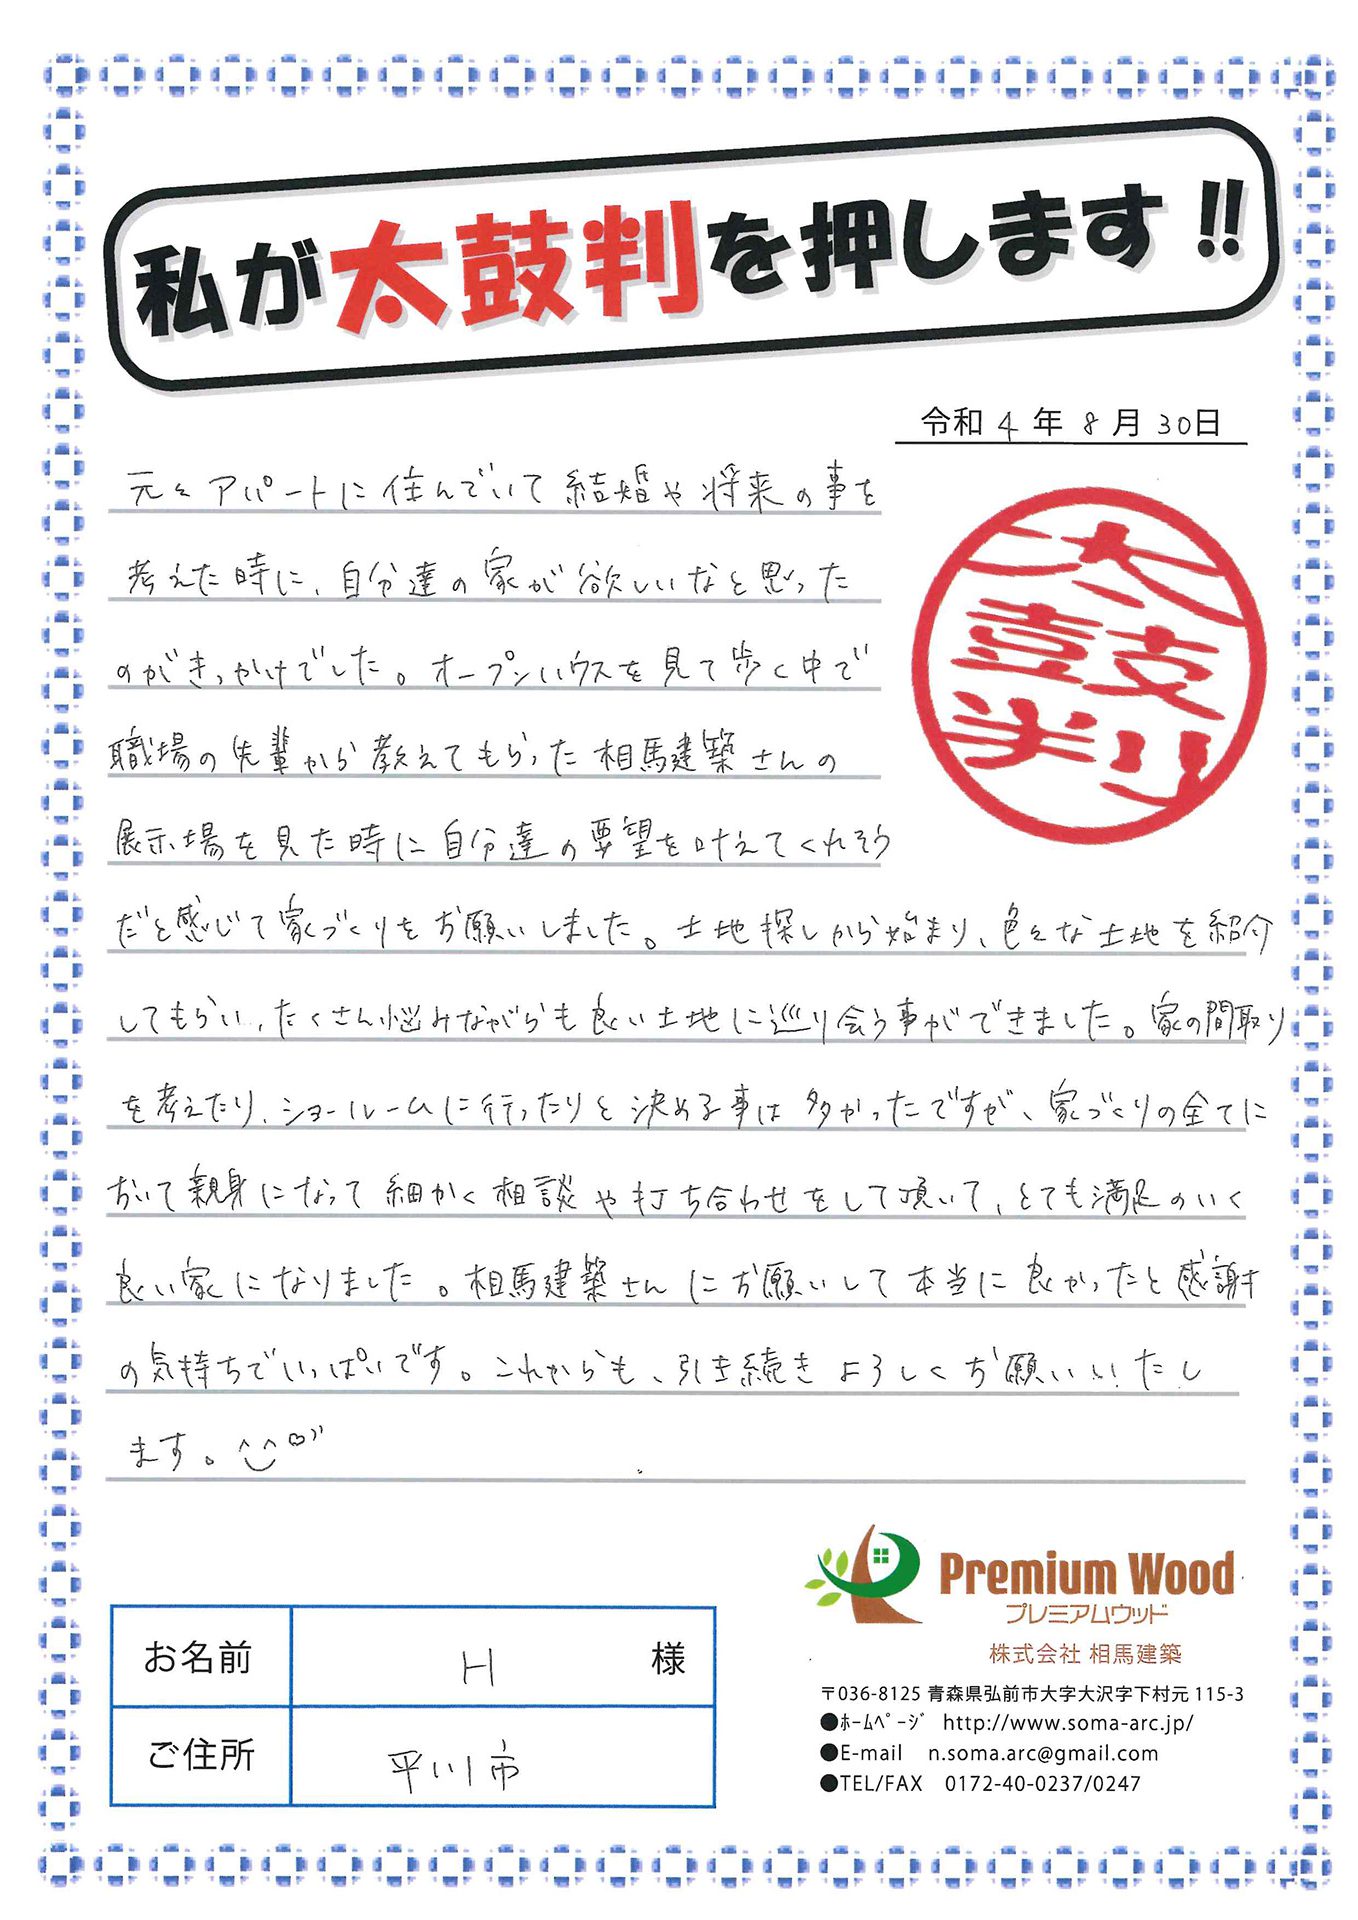 私が太鼓判を押します!!
令和4年8月30日
元々アパートに住んでいて結婚や将来の事を
考えた時に、自分達の家が欲しいなと思った
のがきっかけでした。オープンハウスを見て歩く中で
職場の先輩から教えてもらった相馬建築さんの
展示場を見た時に自分達の要望を叶えてくれそう
だと感じて家づくりをお願いしました。土地探しから始まり、色々な土地を紹介
してもらい、たくさん悩みながらも良い土地に巡り会う事ができました。家の間取り
を考えたり、ショールームに行ったりと決める事は多かったですが、家づくりの全てに
おいて親身になって細かく相談や打ち合わせをして頂いて、とても満足のいく
良い家になりました。相馬建築さんにお願いして本当に良かったと感謝
の気持ちでいっぱいです。これからも、引き続きよろしくお願いいたし
ます。
太鼓判
Premium Wood
プレミアムウッド
株式会社 相馬建築
〒036-8125 青森県弘前市大字大沢字下村元 115-3
●ﾎｰﾑﾍﾟｰｼﾞ http://www.soma-arc.jp/
●E-mail n.soma.arc@gmail.com
●TEL/FAX 0172-40-0237/0247
お名前 H 様
ご住所 平川市